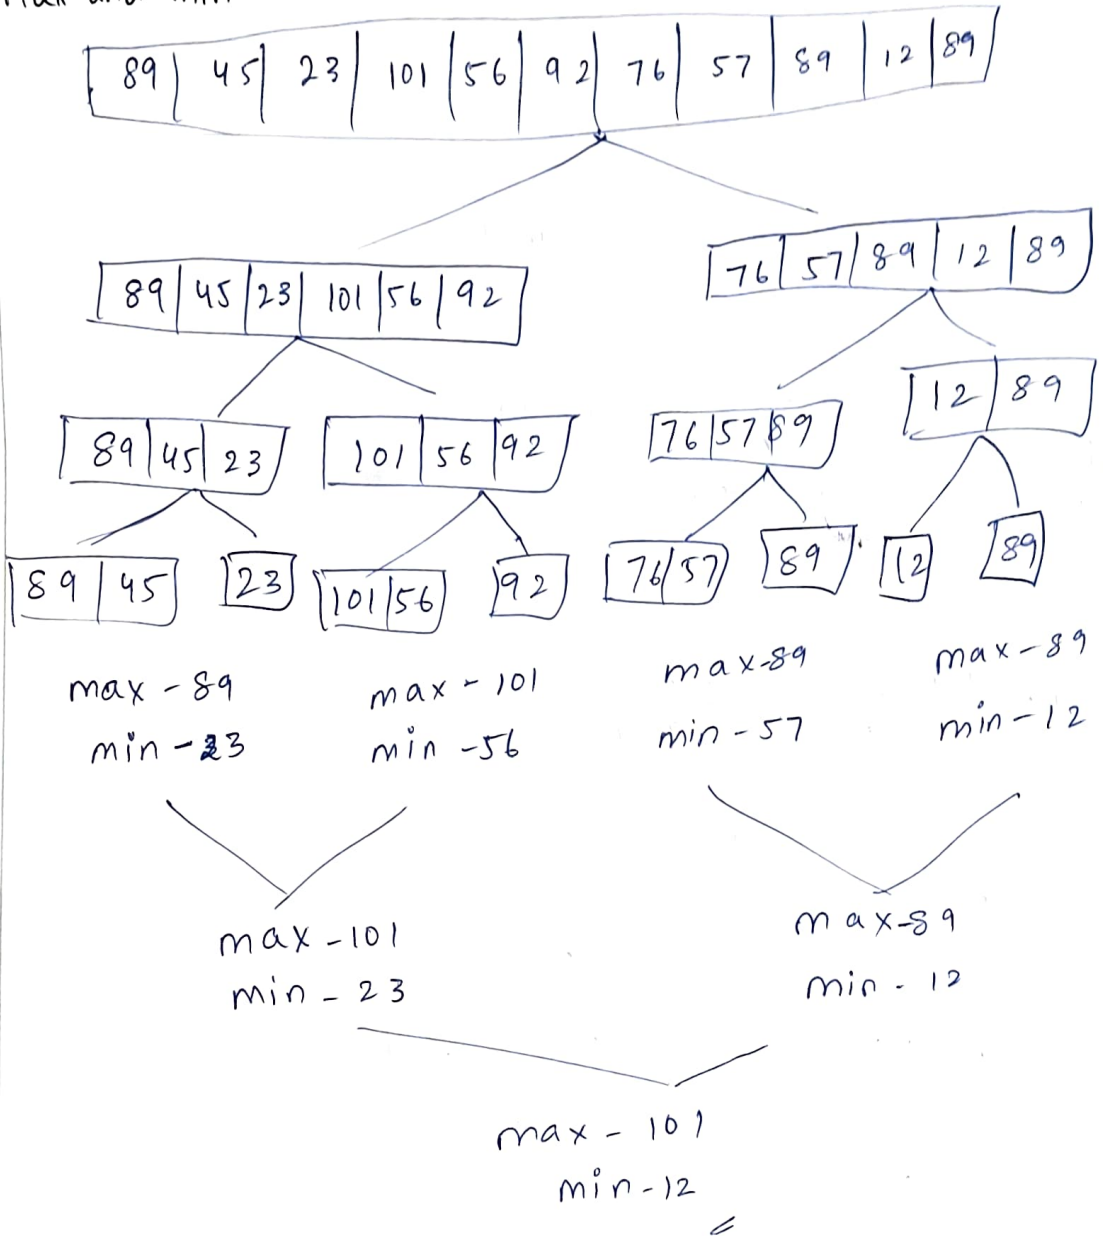 89 45 23 101 56 92 76 57 89 12 89
89 45 23 101 56 92
76 57 89 12 89
89 45 23
101 56 92
76 57 89
12 89
89 45
23
101 56
92
76 57
89
12
89
max - 89
min - 23
max - 101
min - 56
max - 89
min - 57
max - 89
min - 12
max - 101
min - 23
max - 89
min - 12
max - 101
min - 12